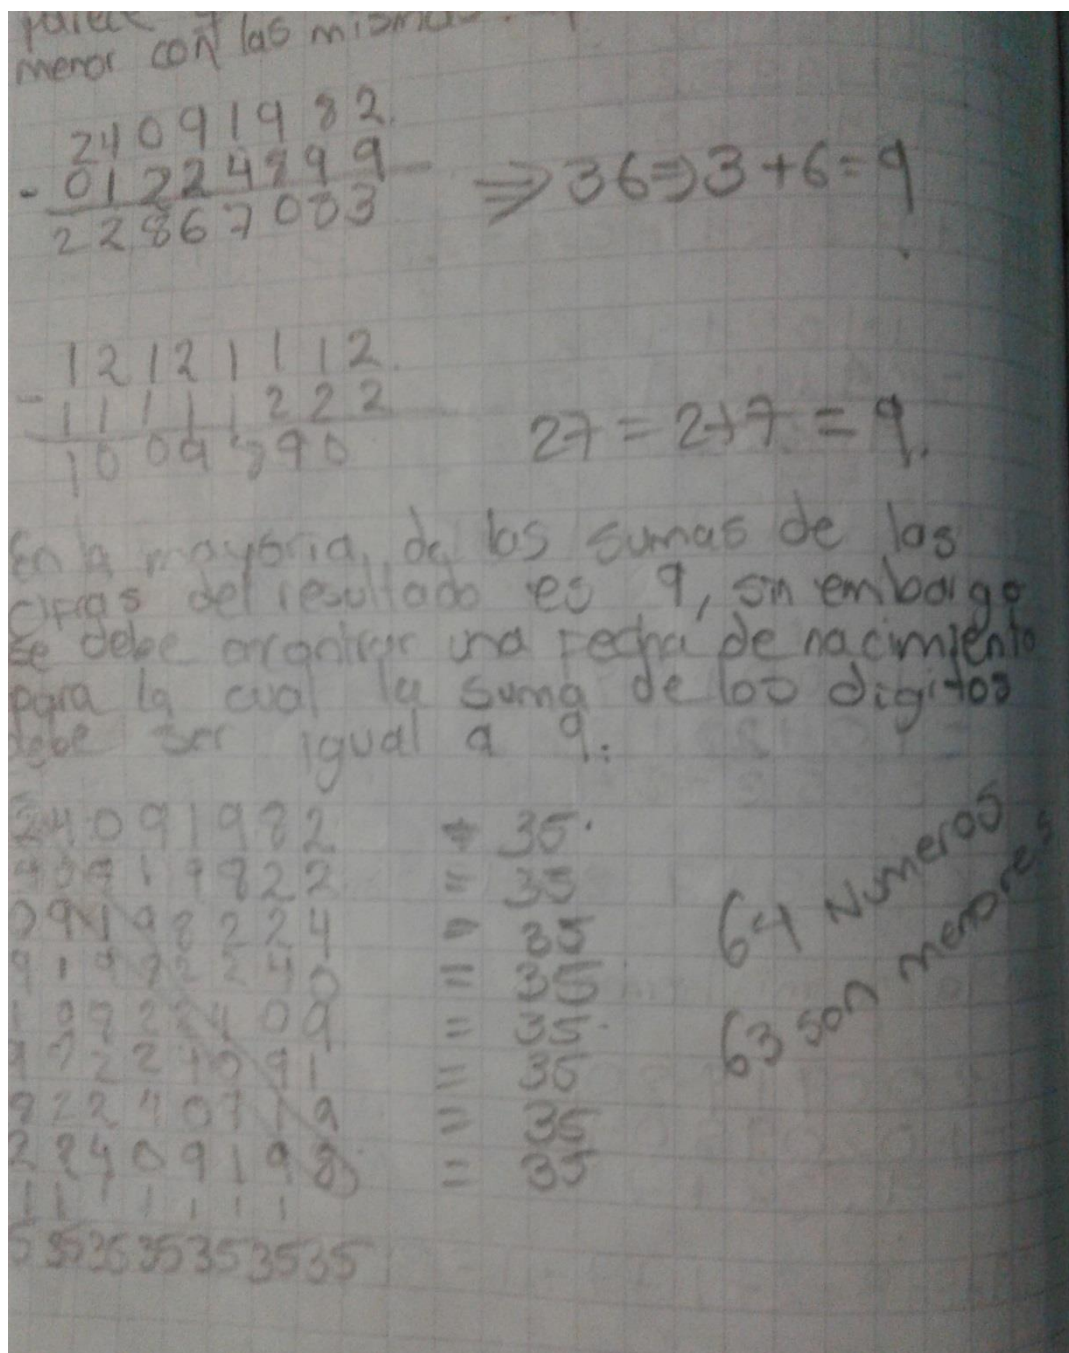 menor con las
24091982.
- 01224899
22867083
⇒ 36⇒3+6=9
12121112.
- 11111222
1009890
27 = 2+7 = 9.
En la mayoria, de las sumas de las
cifras del resultado es 9, sin embargo
se debe una Fecha de nacimiento
para la cual la suma de los digitos
debe ser igual a 9.
24091982 = 35.
40919822 = 35
09198224 = 35
91982240 = 35
19822409 = 35.
98224091 = 35
82240919 = 35
22409198 = 35
1 1 1 1 1 1 1
535353535353535
64 Numeros
63 son menores